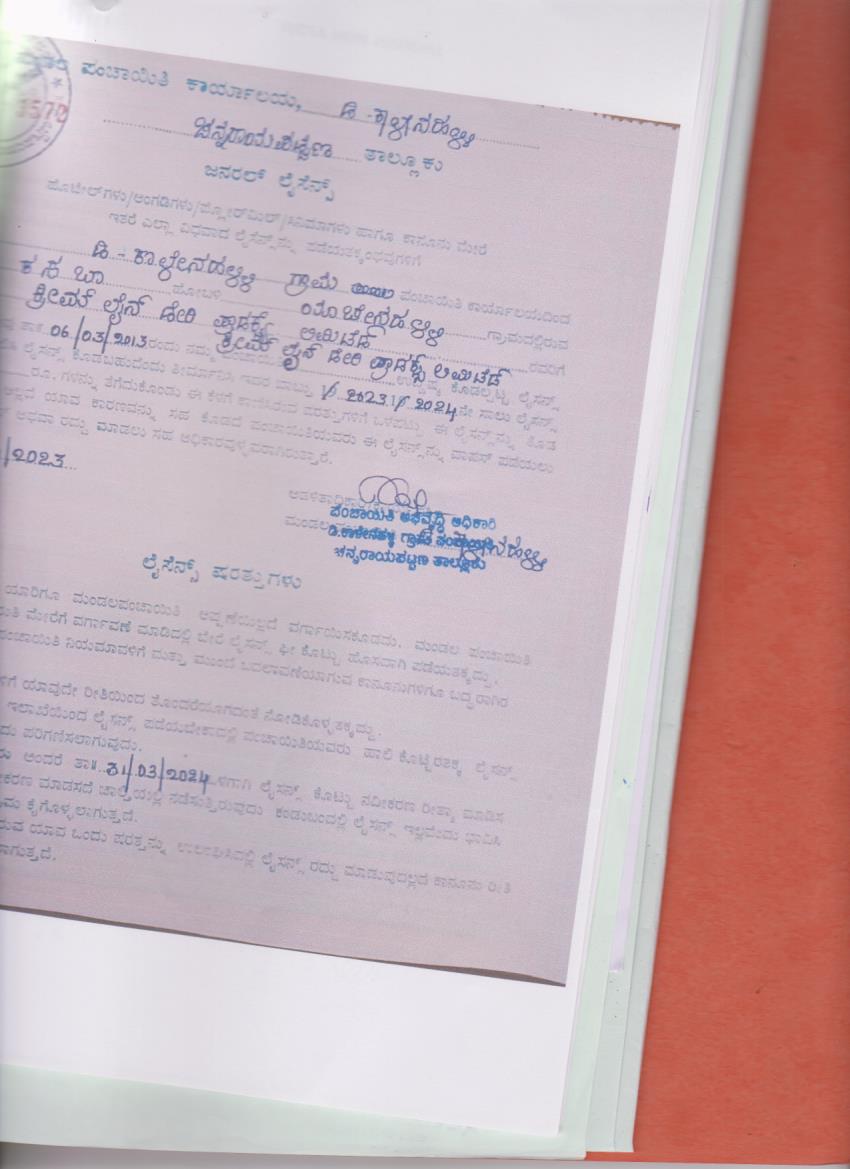 1570
ಪಂಚಾಯಿತಿ ಕಾರ್ಯಾಲಯ, ಡಿ -ಕಾಳೇನಹಳ್ಳಿ
ಚನ್ನರಾಯಪಟ್ಟಣ ತಾಲ್ಲೂಕು
ಜನರಲ್ ಲೈಸೆನ್ಸ್
ಹೊಟೇಲ್‌ಗಳು/ಅಂಗಡಿಗಳು/ಫ್ಲೋರ್‌ಮಿಲ್/ಸಿನಿಮಾಗಳು ಹಾಗೂ ಕಾನೂನು ಮೇರೆ
ಇತರೆ ಎಲ್ಲಾ ವಿಧವಾದ ಲೈಸೆನ್ಸ್‌ನ್ನು ಪಡೆಯತಕ್ಕಂಥವುಗಳಿಗೆ
ಡಿ - ಕಾಳೇನಹಳ್ಳಿ ಗ್ರಾಮ ಪಂಚಾಯಿತಿ ಕಾರ್ಯಾಲಯದಿಂದ
ಕಸಬಾ ಹೋಬಳಿ ಗ್ರಾಮದಲ್ಲಿರುವ
ಕ್ರೀಮ್ ಲೈನ್ ಡೇರಿ ಪ್ರಾಡಕ್ಟ್ಸ್ ಲಿಮಿಟೆಡ್ ರವರಿಗೆ
ಕ್ರೀಮ್ ಲೈನ್ ಡೇರಿ ಪ್ರಾಡಕ್ಟ್ಸ್ ಲಿಮಿಟೆಡ್
ತಾ॥ 06/03/2013ರಂದು ನಮ್ಮ ಕೊಡಲ್ಪಟ್ಟ ಲೈಸೆನ್ಸ್
ಲೈಸೆನ್ಸ್ ಕೊಡಬಹುದೆಂದು ತೀರ್ಮಾನಿಸಿ ಇದರ ಬಾಬ್ತು 2023 2024ನೇ ಸಾಲು ಲೈಸೆನ್ಸ್
ರೂ. ಗಳನ್ನು ತೆಗೆದುಕೊಂಡು ಈ ಕೆಳಗೆ ಕಾಣಿಸಿರುವ ಷರತ್ತುಗಳಿಗೆ ಒಳಪಟ್ಟು ಈ ಲೈಸೆನ್ಸ್‌ನ್ನು ಕೊಡ
ಅಲ್ಲದೆ ಯಾವ ಕಾರಣವನ್ನು ಸಹ ಕೊಡದೆ ಪಂಚಾಯಿತಿಯವರು ಈ ಲೈಸೆನ್ಸ್‌ನ್ನು ವಾಪಸ್ ಪಡೆಯಲು
ಅಥವಾ ರದ್ದು ಮಾಡಲು ಸಹ ಅಧಿಕಾರವುಳ್ಳವರಾಗಿರುತ್ತಾರೆ.
/2023
ಪಂಚಾಯಿತಿ ಅಭಿವೃದ್ಧಿ ಅಧಿಕಾರಿ
ಮಂಡಲ
ಡಿ.ಕಾಳೇನಹಳ್ಳಿ ಗ್ರಾಮ ಪಂಚಾಯಿತಿ
ಚನ್ನರಾಯಪಟ್ಟಣ ತಾಲ್ಲೂಕು
ಲೈಸೆನ್ಸ್ ಷರತ್ತುಗಳು
ಯಾರಿಗೂ ಮಂಡಲಪಂಚಾಯಿತಿ ಅಪ್ಪಣೆಯಿಲ್ಲದೆ ವರ್ಗಾಯಿಸಕೂಡದು. ಮಂಡಲ ಪಂಚಾಯಿತಿ
ಮೇರೆಗೆ ವರ್ಗಾವಣೆ ಮಾಡಿದಲ್ಲಿ ಬೇರೆ ಲೈಸೆನ್ಸ್ ಫೀ ಕೊಟ್ಟು ಹೊಸದಾಗಿ ಪಡೆಯತಕ್ಕದ್ದು.
ಪಂಚಾಯಿತಿ ನಿಯಮಾವಳಿಗೆ ಮತ್ತು ಮುಂದೆ ಬದಲಾವಣೆಯಾಗುವ ಕಾನೂನುಗಳಿಗೂ ಬದ್ಧರಾಗಿರ
ಯಾವುದೇ ರೀತಿಯಿಂದ ತೊಂದರೆಯಾಗದಂತೆ ನೋಡಿಕೊಳ್ಳತಕ್ಕದ್ದು.
ಇಲಾಖೆಯಿಂದ ಲೈಸೆನ್ಸ್ ಪಡೆಯಬೇಕಾದಲ್ಲಿ ಪಂಚಾಯಿತಿಯವರು ಹಾಲಿ ಕೊಟ್ಟಿರತಕ್ಕ ಲೈಸೆನ್ಸ್
ಪರಿಗಣಿಸಲಾಗುವುದು.
ಅಂದರೆ ತಾ॥ 31/03/2024 ಳಗಾಗಿ ಲೈಸೆನ್ಸ್ ಕೊಟ್ಟು ನವೀಕರಣ ರೀತ್ಯಾ ಮಾಡಿಸ
ಮಾಡಿಸದೆ ಚಾಲ್ತಿಯಲ್ಲಿ ನಡೆಸುತ್ತಿರುವುದು ಕಂಡುಬಂದಲ್ಲಿ ಲೈಸೆನ್ಸ್ ಇಲ್ಲವೆಂದು ಭಾವಿಸಿ
ಕೈಗೊಳ್ಳಲಾಗುತ್ತದೆ.
ಯಾವ ಒಂದು ಷರತ್ತನ್ನು ಉಲ್ಲಂಘಿಸಿದಲ್ಲಿ ಲೈಸೆನ್ಸ್ ರದ್ದು ಮಾಡುವುದಲ್ಲದೆ ಕಾನೂನು ರೀತಿ